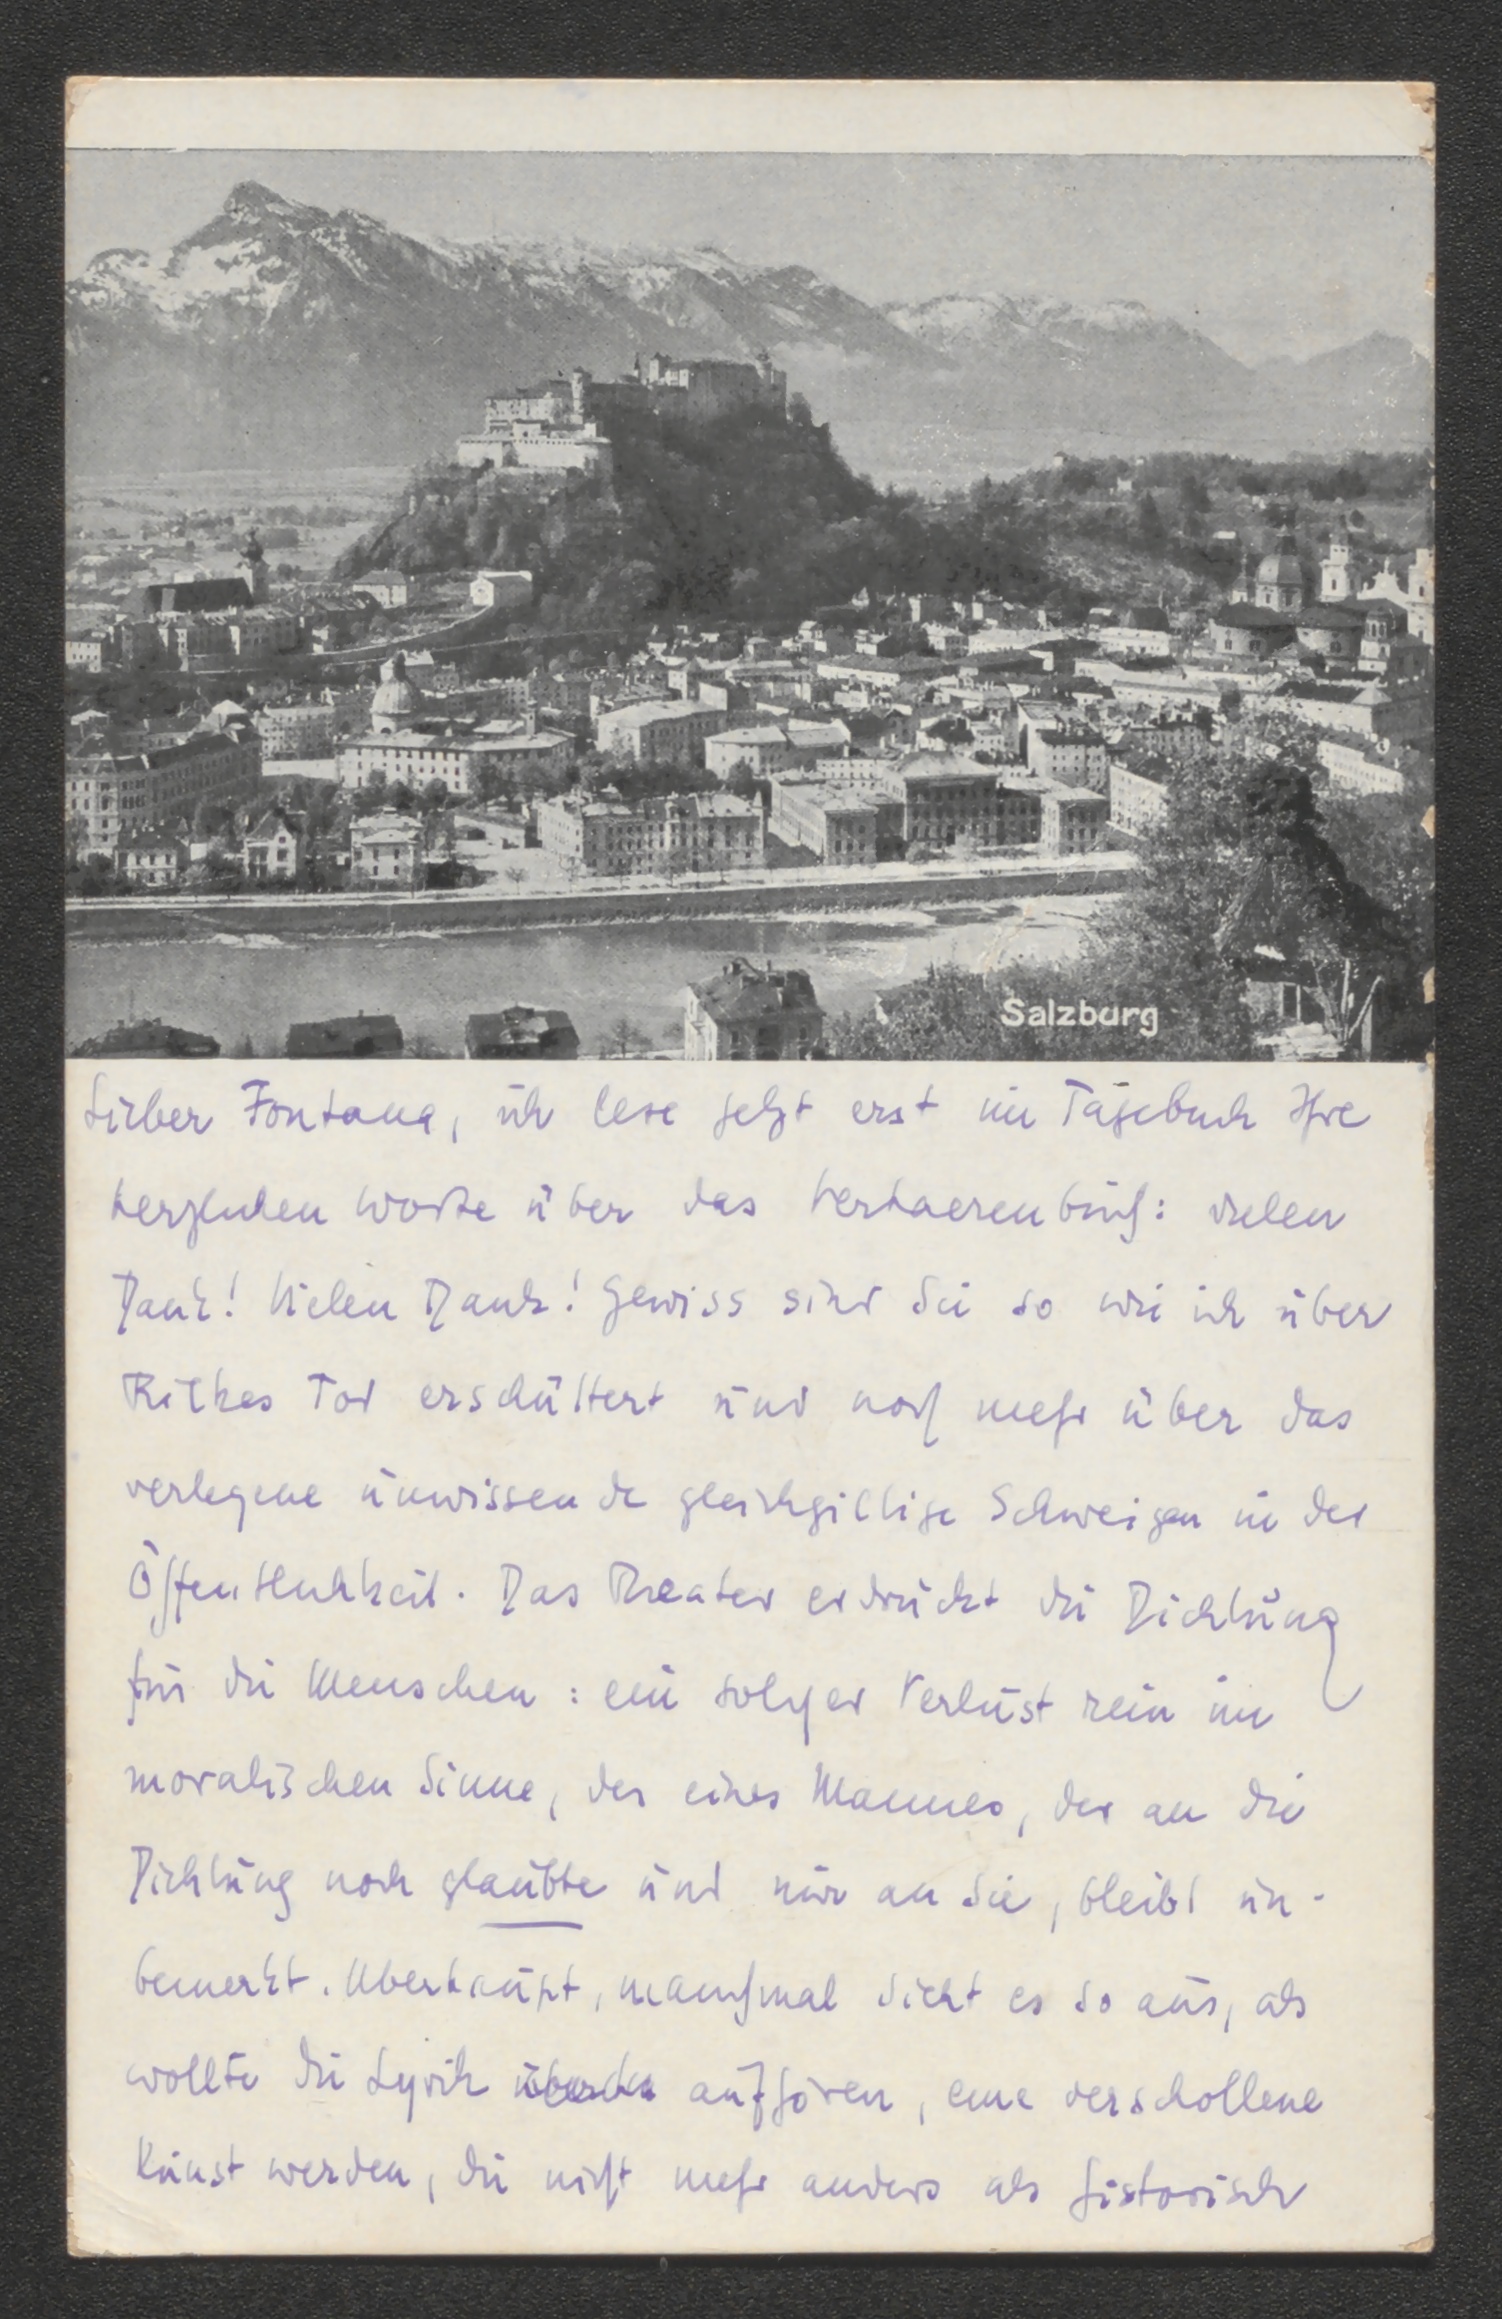 Salzburg
Lieber Fontana, ich lese jetzt erst im Tagebuch Ihre
herzlichen Worte über das Verhaerenbuch: vielen
Dank! Vielen Dank! Gewiss sind Sie so wie ich über
Rilkes Tod erschüttert und noch mehr über das
verlegene unwissende gleichgiltige Schweigen in der
Öffentlichkeit. Das Theater erdrückt die Dichtung
für die Menschen: ein solcher Verlust rein im
moralischen Sinne, der eines Mannes, der an die
Dichtung noch glaubte und nur an Sie, bleibt un-
bemerkt. Uberhaupt, manchmal sieht es so aus, als
wollte die Lyrik aufhören, eine verschollene
Kunst werden, die nicht mehr anders als historisch